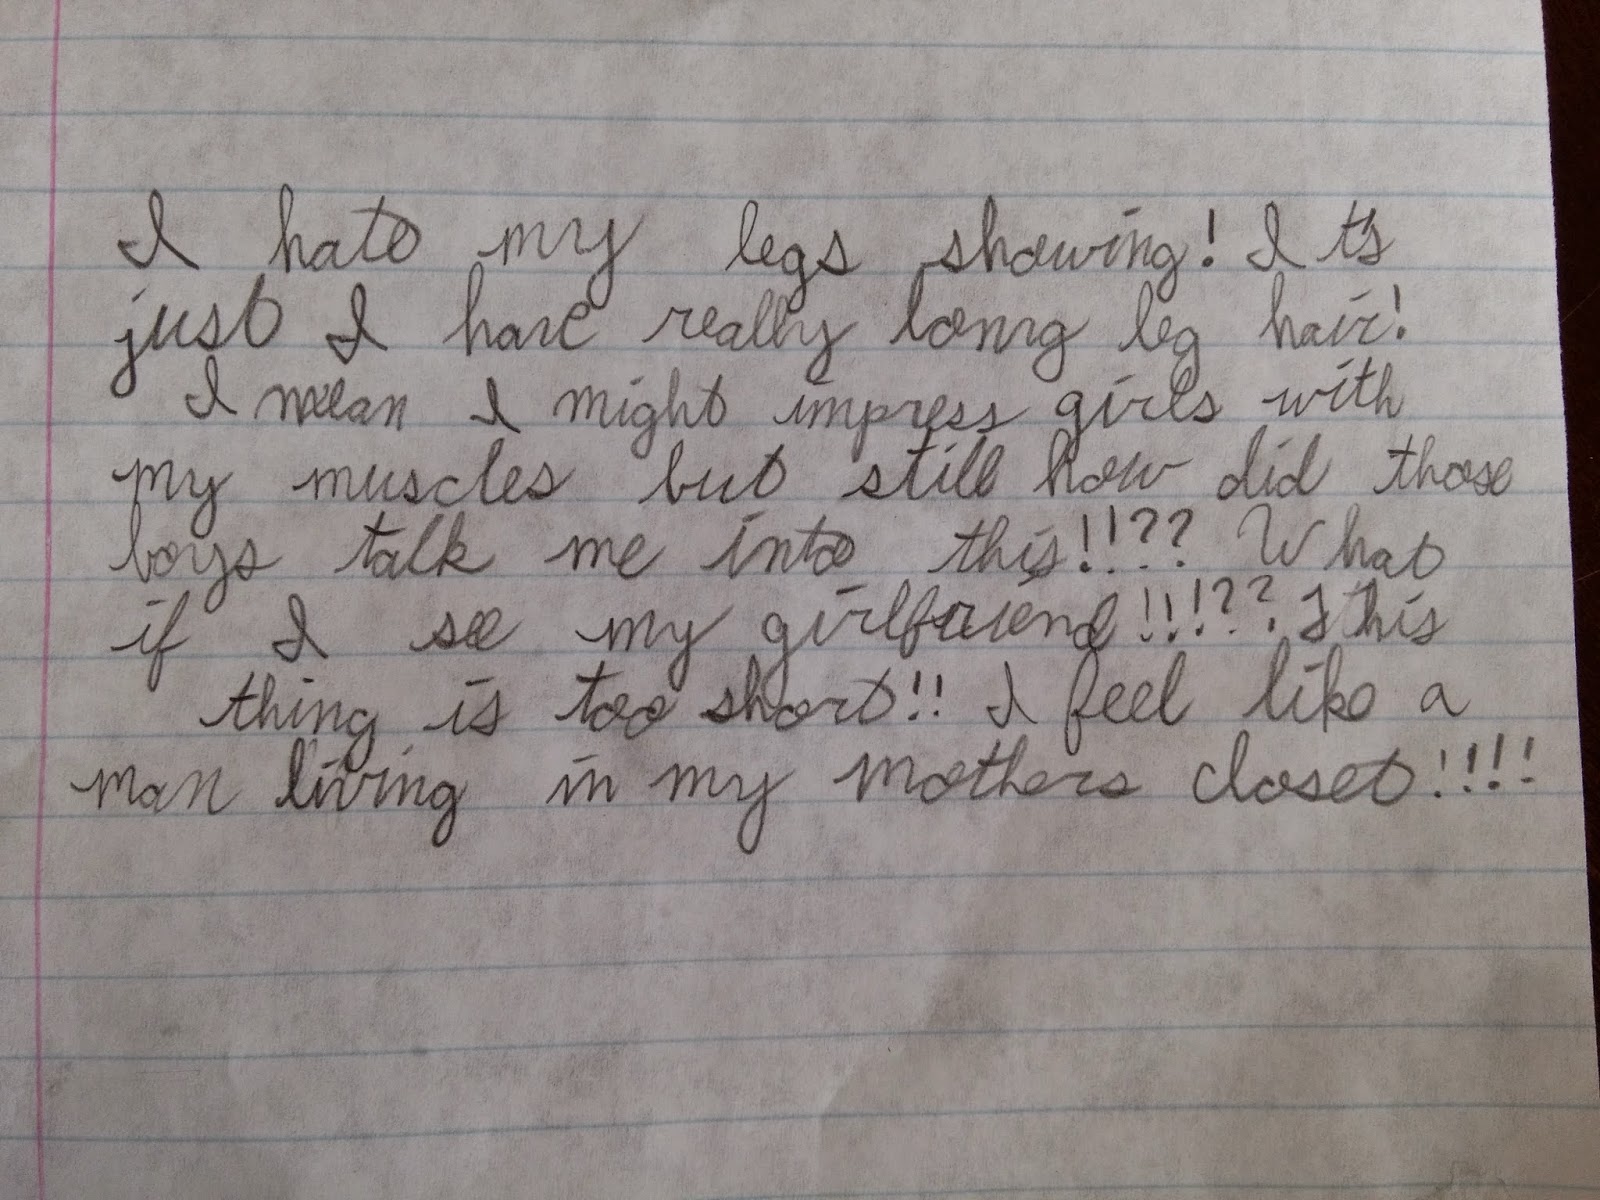 I hate my legs showing! Its
just I have really long leg hair!
I mean I might impress girls with
my muscles but still how did those
boys talk me into this!!?? What
if I see my girlfriend!!!?? This
thing is too short!! I feel like a
man living in my mothers closet!!!!